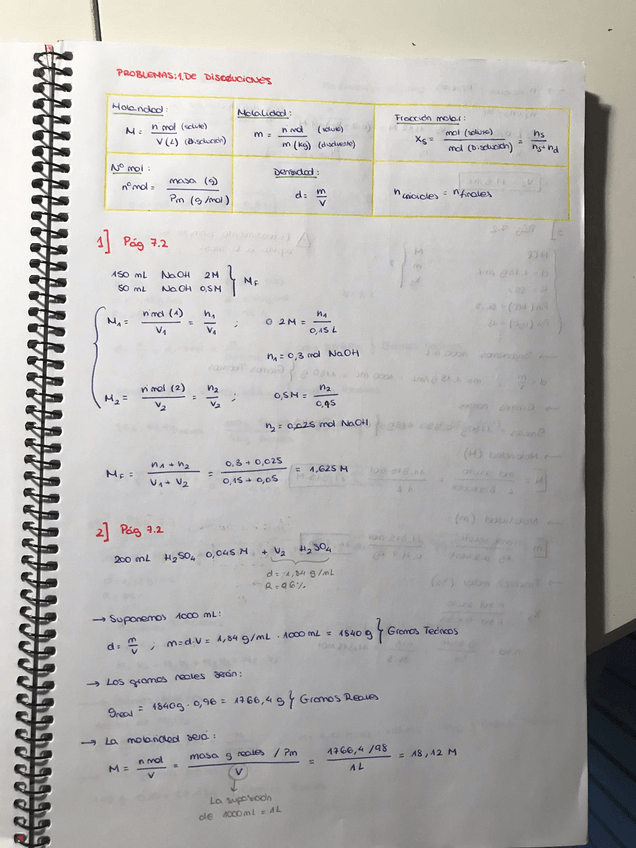 PROBLEMAS: 1. DE DISOLUCIONES
Molaridad:
M = n mol (soluto) / V (L) (Disolución)
Molalidad:
m = n mol (soluto) / m (kg) (disolvente)
Fracción molar:
Xs = mol (soluto) / mol (Disolución) = ns / ns + nd
Nº mol:
nº mol = masa (g) / Pm (g/mol)
Densidad:
d = m / V
n iniciales = n finales
1] Pág 7.2
150 mL NaOH 2M
50 mL NaOH 0,5M } MF
M1 = n mol (1) / V1 = n1 / V1 ; 2M = n1 / 0,15 L
n1 = 0,3 mol NaOH
M2 = n mol (2) / V2 = n2 / V2 ; 0,5M = n2
n2 = 0,025 mol NaOH
MF = n1 + n2 / V1 + V2 = 0,3 + 0,025 / 0,15 + 0,05 = 1,625 M
2] Pág 7.2
200 mL H2SO4 0,045 M + V2 H2SO4
d = 1,84 g/mL
R = 96%
→ Suponemos 1000 mL:
d = m / V ; m = d·V = 1,84 g/mL · 1000 mL = 1840 g } Gramos Teóricos
→ Los gramos reales serán:
g real = 1840g · 0,96 = 1766,4 g } Gramos Reales
→ La molaridad será:
M = n mol / V = masa g reales / Pm / V = 1766,4 / 98 / 1L = 18,12 M
La suposición
de 1000 mL = 1L